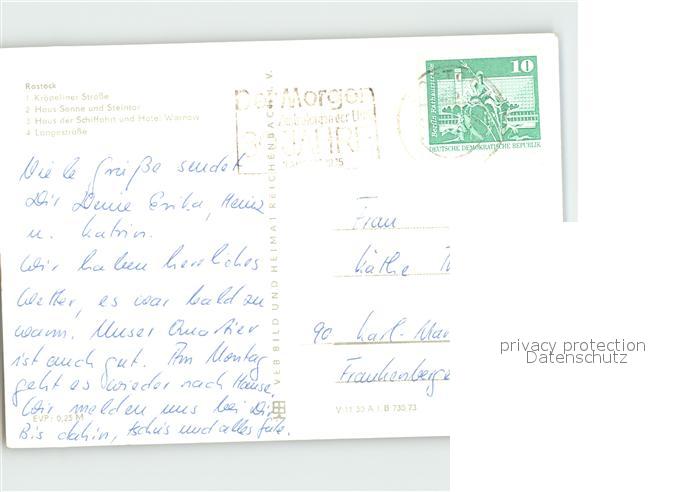 Rostock
1 Kröpeliner Straße
2 Haus Sonne und Steintor
3 Haus der Schiffahrt und Hotel Warnow
4 Langestraße
Der Morgen
30 JAHRE
10
Berlin Rathausstraße
DEUTSCHE DEMOKRATISCHE REPUBLIK
Viele Grüße sendet
Dir Deine Erika, Heinz
u. Katrin.
Wir haben herrliches
Wetter, es war bald zu
warm. Unser Quartier
ist auch gut. Am Montag
geht es wieder nach Hause.
Wir melden uns bei Dir
Bis dahin, tschüs und alles Gute.
EVP: 0,25 M
VEB BILD UND HEIMAT REICHENBACH i. V.
Frau
Käthe
90 Karl-Mar
Frankenberger
V 11 50 A 1 B 730/73
privacy protection
Datenschutz